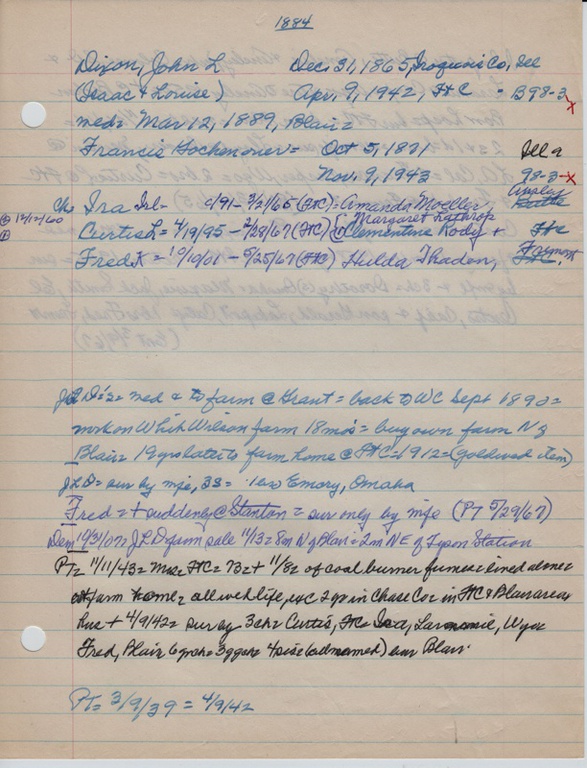 1884
Dixon, John L Dec. 31, 1865, Iroquois Co, Ill
(Isaac + Louise) Apr. 9, 1942, FtC - B98-3 x
med = Mar 12, 1889, Blair =
Francis Gochenouer = Oct 5, 1871 Ill a
Nov. 9, 1943 98-3 x
Ch Ira Irl - /91 - 3/21/65 (FtC) = Amanda Moeller,
12/12/60 Margaret Lathrop
Curtis L = 4/19/95 - 2/28/67 (FtC) Clementine Rody + FtC
Fred K = 10/10/01 - 5/25/67 (FtC) Hulda Thaden, FtC,
JLD's = med & to farm @ Grant = back to WC Sept 1890 =
work on Whit Wilson farm 18 mo's = buy own farm N of
Blair 19 yrs later to farm home @ FtC = 1912 = (goldwed item)
JLD = sur by wife, 3s = 1 bro Emory, Omaha
Fred = + suddenly @ Stanton = sur only by wife (PT 5/29/67)
Dem 10/31/07 = JLD farm sale 11/13 = 8m N of Blair = 2m NE of Tyson Station
PT = 11/11/43 = Mrs = FtC = 73 = + 11/8 = of coal burner fumes = lived alone
@ farm home = all wed life, exc 2 yr in Chase Co = in FtC & Blair areas
hus + 4/9/42 = sur by 3ch = Curtis, FtC = Ira, Laramie, Wyo =
Fred, Blair 6 grch = 3 ggch = 4 sis (all married) bur Blair.
PT = 3/9/39 = 4/9/42